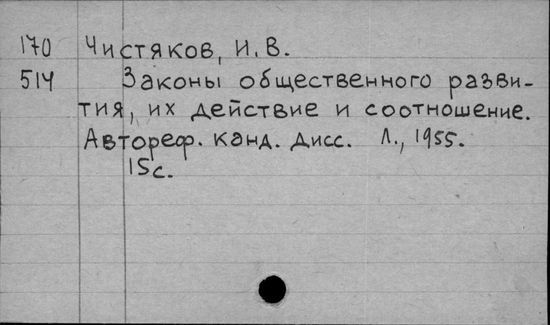 170 Чистяков, И. В.
514 Законы общественного разви-
тия, их действие и соотношение.
Автореф. канд. дисс. Л., 1955.
15с.